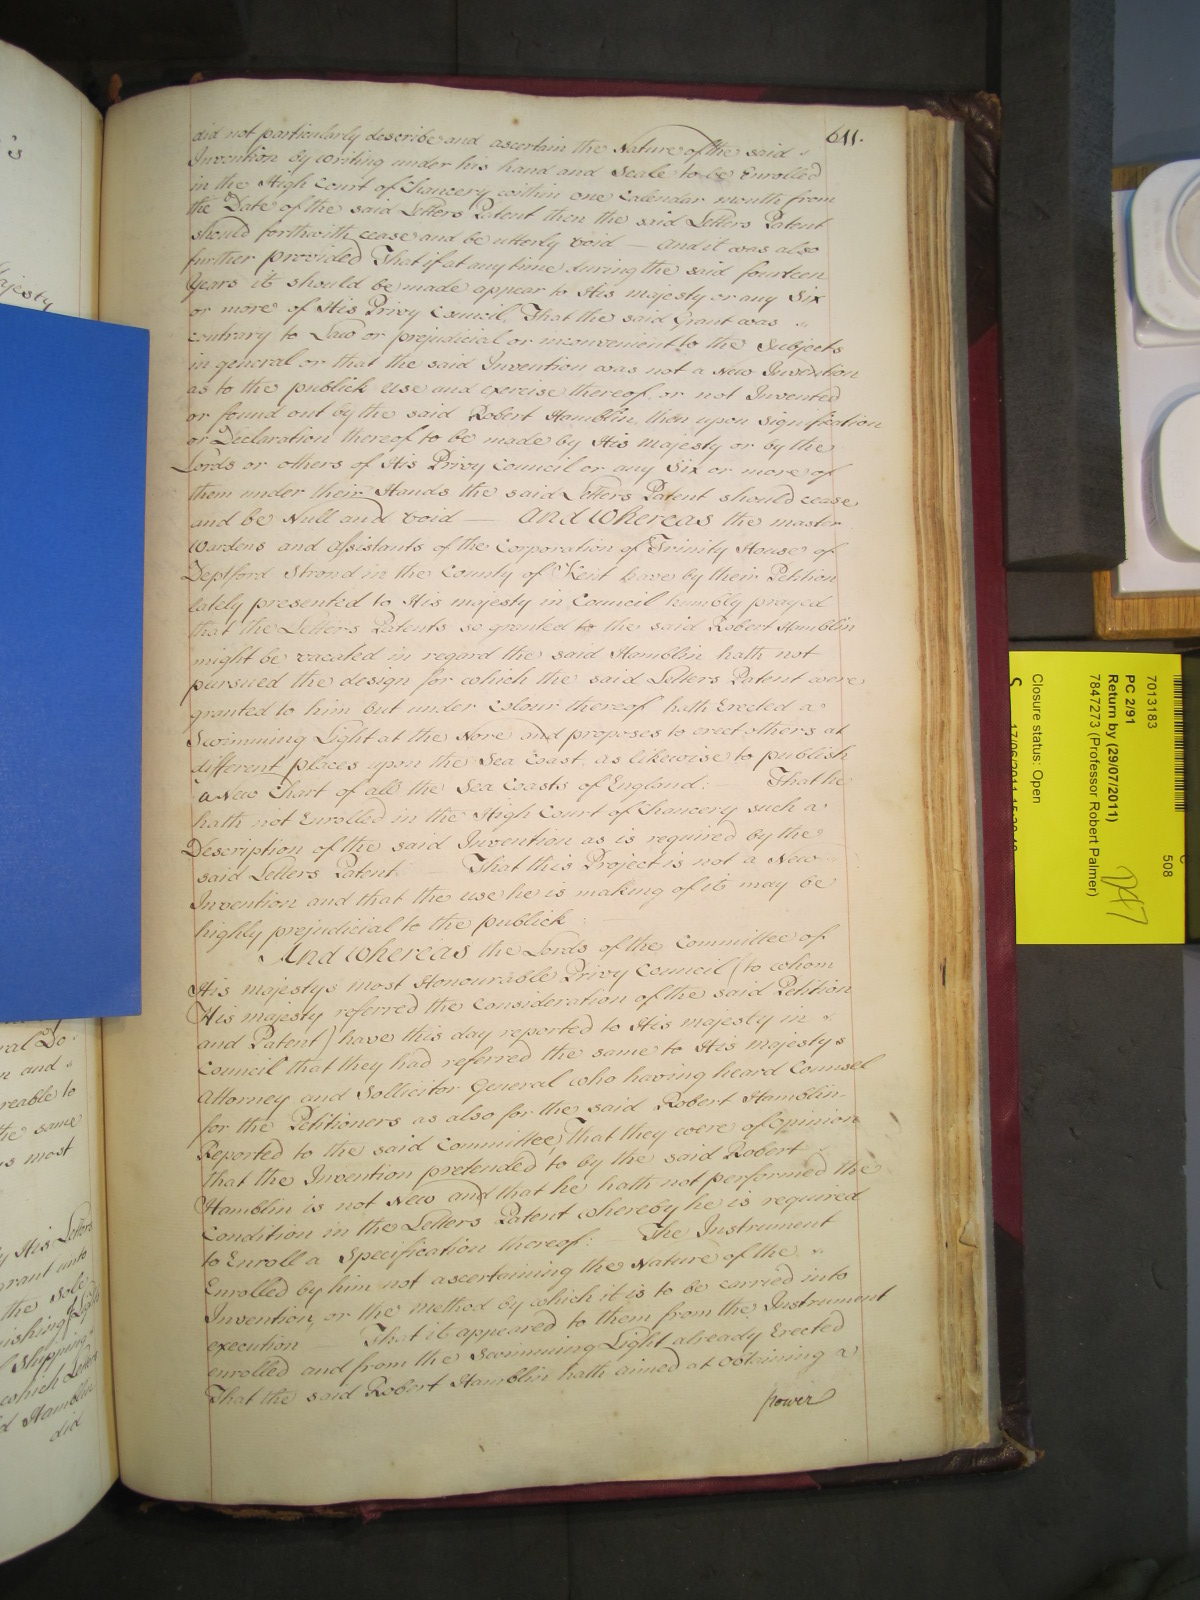 641.
did not particularly describe and ascertain the Nature of the said
Invention by Writing under his hand and Seale to be Enrolled
in the High Court of Chancery within one Calendar month from
the Date of the said Letters Patent then the said Letters Patent
should forthwith cease and be utterly void — and it was also
further provided That if at any time during the said fourteen
Years it should be made appear to His Majesty or any Six
or more of His Privy Council, That the said Grant was
contrary to Law or prejudicial or inconvenient to the Subjects
in general or that the said Invention was not a New Invention
as to the publick use and exercise thereof, or not Invented
or found out by the said Robert Hamblin, then upon signification
or Declaration thereof to be made by His Majesty or by the
Lords or others of His Privy Council or any Six or more of
them under their Hands the said Letters Patent should cease
and be Null and void — And Whereas the master
Wardens and assistants of the Corporation of Trinity House of
Deptford Strond in the County of Kent have by their Petition
lately presented to His Majesty in Council humbly prayed
that the Letters Patents so granted to the said Robert Hamblin
might be vacated in regard the said Hamblin hath not
pursued the design for which the said Letters Patent were
granted to him but under Colour thereof hath Erected a
Swimming Light at the Nore and proposes to erect others at
different places upon the Sea Coast, as likewise to publish
a New Chart of all the Sea Coasts of England: That he
hath not Enrolled in the High Court of Chancery such a
Description of the said Invention as is required by the
said Letters Patent — That this Project is not a New
Invention and that the use he is making of it may be
highly prejudicial to the publick:
And Whereas the Lords of the Committee of
His majestys most Honourable Privy Council (to whom
His majesty referred the Consideration of the said Petition
and Patent) have this day reported to His majesty in
Council that they had referred the same to His Majestys
Attorney and Sollicitor General who having heard Counsel
for the Petitioners as also for the said Robert Hamblin
Reported to the said Committee, That they were of Opinion
that the Invention pretended to by the said Robert
Hamblin is not New and that he hath not performed the
Condition in the Letters Patent whereby he is required
to Enroll a Specification thereof: The Instrument
Enrolled by him not ascertaining the Nature of the
Invention, or the method by which it is to be carried into
execution — That it appeared to them from the Instrument
enrolled and from the Swimming Light already Erected
That the said Robert Hamblin hath aimed at obtaining a
power
7013183
508
PC 2/91
Return by (29/07/2011)
7847273 (Professor Robert Palmer)
Closure status: Open